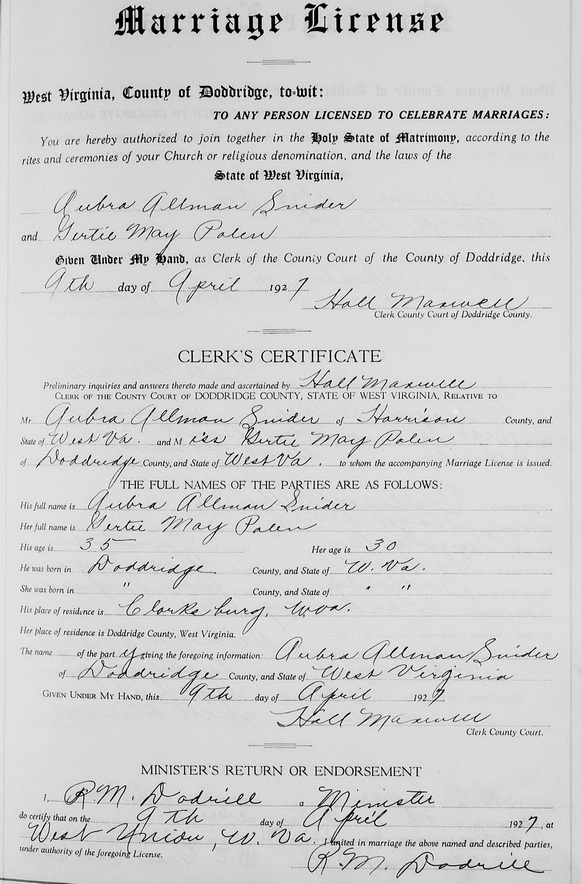 Marriage License
West Virginia, County of Doddridge, to-wit:
TO ANY PERSON LICENSED TO CELEBRATE MARRIAGES:
You are hereby authorized to join together in the Holy State of Matrimony, according to the
rites and ceremonies of your Church or religious denomination, and the laws of the
State of West Virginia,
Aubra Allman Snider
and Gertie May Polen
Given Under My Hand, as Clerk of the County Court of the County of Doddridge, this
9th day of April 1927
Hall Maxwell
Clerk County Court of Doddridge County.
CLERK'S CERTIFICATE
Preliminary inquiries and answers thereto made and ascertained by Hall Maxwell
CLERK OF THE COUNTY COURT OF DODDRIDGE COUNTY, STATE OF WEST VIRGINIA, RELATIVE TO
Mr Aubra Allman Snider of Harrison County, and
State of West Va. and Miss Gertie May Polen
of Doddridge County, and State of West Va. to whom the accompanying Marriage License is issued.
THE FULL NAMES OF THE PARTIES ARE AS FOLLOWS:
His full name is Aubra Allman Snider
Her full name is Gertie May Polen
His age is 35 Her age is 30
He was born in Doddridge County, and State of W. Va.
She was born in " County, and State of " "
His place of residence is Clarksburg, W.Va.
Her place of residence is Doddridge County, West Virginia.
The name of the party giving the foregoing information: Aubra Allman Snider
of Doddridge County, and State of West Virginia
GIVEN UNDER MY HAND, this 9th day of April 1927
Hall Maxwell
Clerk County Court.
MINISTER'S RETURN OR ENDORSEMENT
I, R.M. Dodrill a Minister
do certify that on the 9th day of April 1927, at
West Union, W. Va. I united in marriage the above named and described parties,
under authority of the foregoing License.
R.M. Dodrill